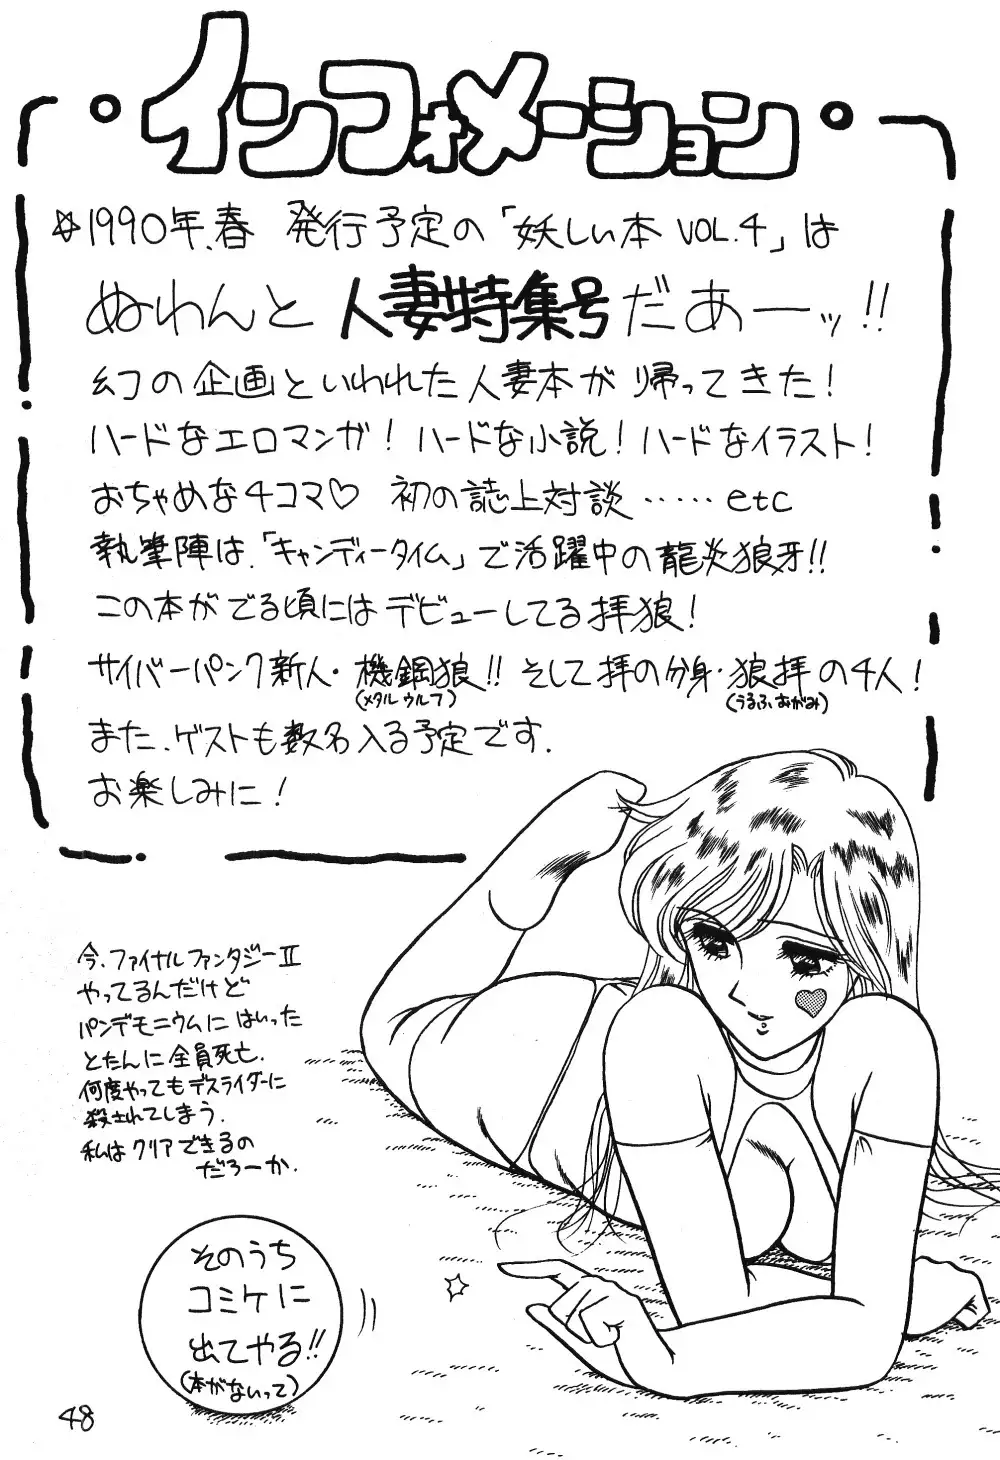 インフォメーション
☆1990年、春 発行予定の「妖しい本 VOL.4」は
ぬわんと人妻特集号だあーッ!!
幻の企画といわれた人妻本が帰ってきた!
ハードなエロマンガ! ハードな小説! ハードなイラスト!
おちゃめな4コマ♡ 初の誌上対談……etc
執筆陣は、「キャンディータイム」で活躍中の龍炎狼牙!!
この本がでる頃にはデビューしてる拝狼!
サイバーパンク新人・機鋼狼!! そして拝の分身・狼拝の4人!
(メタルウルフ) (うるふおがみ)
また、ゲストも数名入る予定です.
お楽しみに!
今、ファイナルファンタジーⅡ
やってるんだけど
パンデモニウムにはいった
とたんに全員死亡.
何度やってもデスライダーに
殺されてしまう.
私はクリアできるの
だろーか.
そのうち
コミケに
出てやる!!
(本がないって)
48